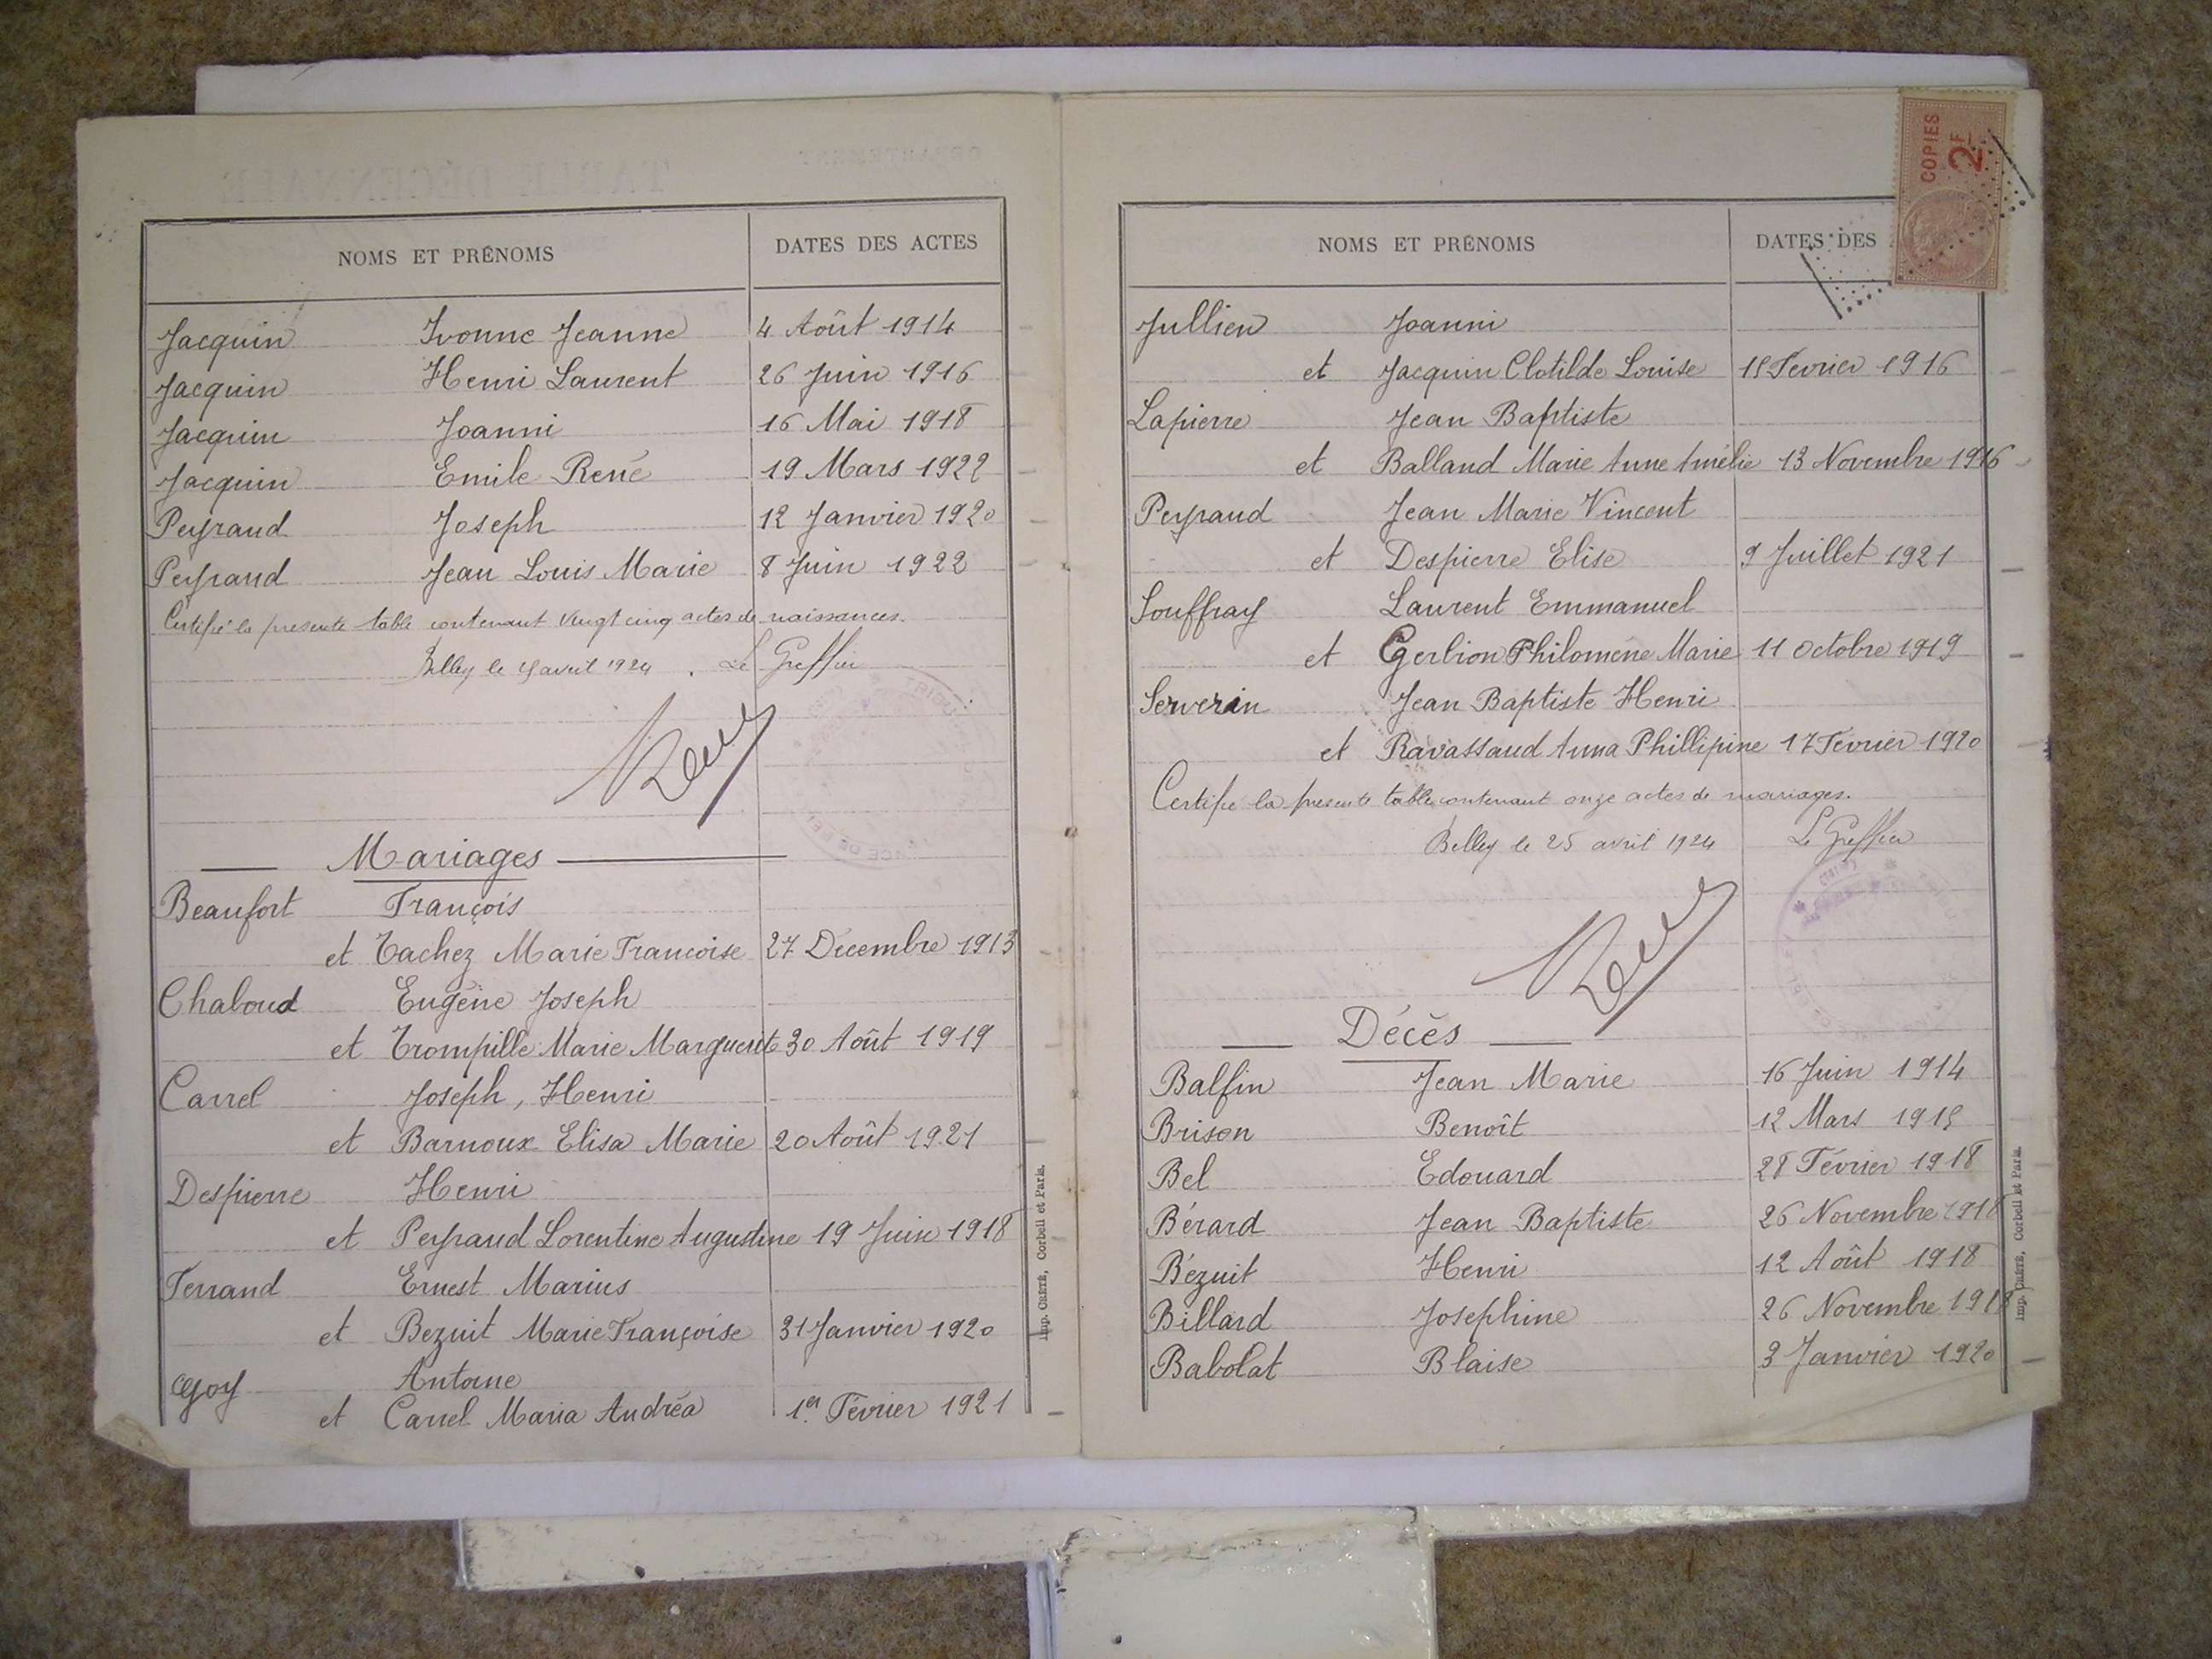 NOMS ET PRÉNOMS DATES DES ACTES
Jacquin Ivonne Jeanne 4 Août 1914
Jacquin Henri Laurent 26 Juin 1916
Jacquin Joanni 16 Mai 1918
Jacquin Emile René 19 Mars 1922
Peyraud Joseph 12 Janvier 1920
Peyraud Jean Louis Marie 8 Juin 1922
Certifié la presente table contenant vingt cinq actes de naissances.
Belley le avril 1924. Le Greffier
Mariages
Beaufort François
et Tachez Marie Francoise 27 Décembre 1913
Chaboud Eugène Joseph
et Trompille Marie Marguerite 30 Août 1919
Carrel Joseph, Henri
et Barnoux Elisa Marie 20 Août 1921
Despierre Henri
et Peyraud Lorentine Augustine 19 Juin 1918
Ferrand Ernest Marius
et Bezuit Marie Françoise 31 Janvier 1920
Goy Antoine
et Carrel Maria Andréa 1er Février 1921
Imp. CRÉTÉ, Corbeil et Paris.
COPIES
2F
NOMS ET PRÉNOMS DATES DES
Jullien Joanni
et Jacquin Clotilde Louise Fevrier 1916
Lapierre Jean Baptiste
et Balland Marie Anne Amélie 13 Novembre 1916
Peyraud Jean Marie Vincent
et Despierre Elise 9 Juillet 1921
Souffray Laurent Emmanuel
et Gerlion Philomène Marie 11 Octobre 1919
Serverin Jean Baptiste Henri
et Ravassaud Anna Phillipine 17 Fevrier 1920
Certifie la presente table contenant onze actes de mariages.
Belley le 25 avril 1924 Le Greffier
Décès
Balfin Jean Marie 16 Juin 1914
Brison Benoît 12 Mars 1915
Bel Edouard 28 Février 1918
Bérard Jean Baptiste 26 Novembre 1918
Bézuit Henri 12 Août 1918
Billard Josephine 26 Novembre 1918
Babolat Blaise 3 Janvier 1920
Imp. CRÉTÉ, Corbeil et Paris.